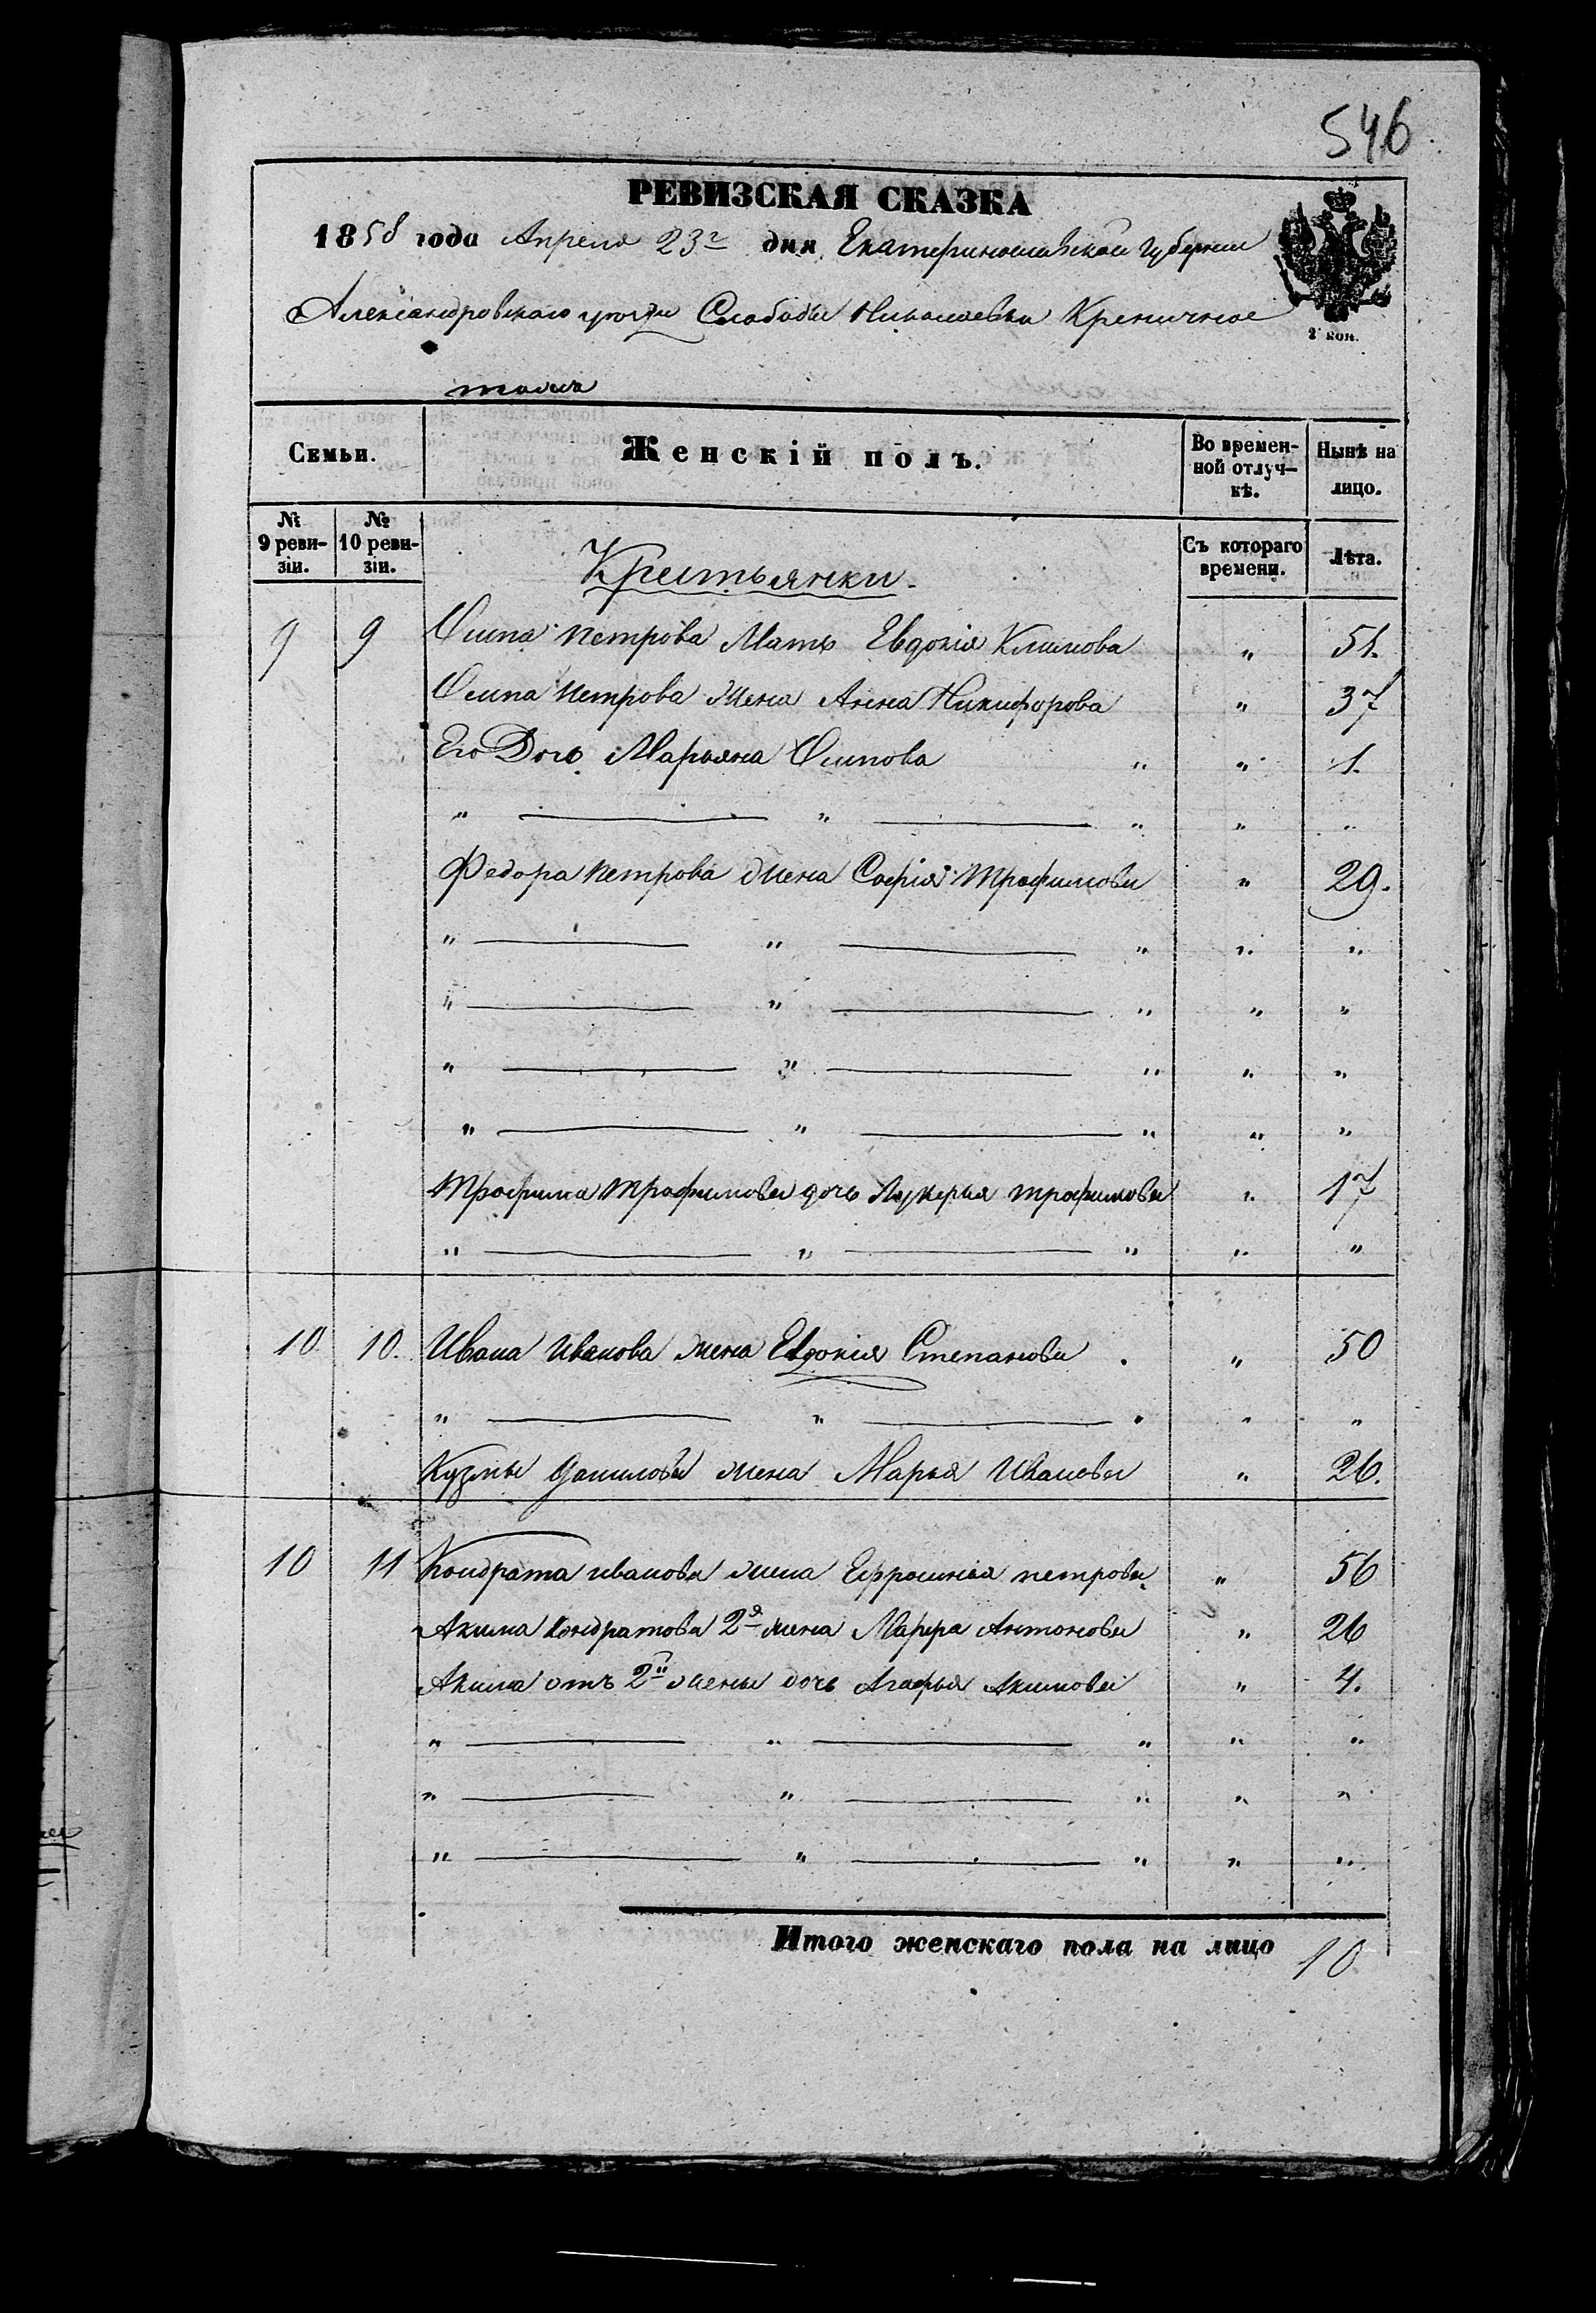 546
РЕВИЗСКАЯ СКАЗКА
1858 года Апреля 23г дня, Екатеринославской губернии
Александровскаго уезда Слободы Николаевки Креничное
тожъ
2 коп.
Семьи. Женскій полъ. Во времен-ной отлуч-кѣ. Нынѣ на лицо.
№ 9 реви-зіи. № 10 реви-зіи. Крестьянки. Съ котораго времени. Лѣта.
9 9 Осипа Петрова Мать Евдокія Климова " 51.
Осипа Петрова жена Анна Никифорова " 37
Его Дочь Марьяна Осипова " " 1.
" — " — " " "
Федора Петрова жена Софія Трофимова " 29.
" — " — " " "
" — " — " " "
" — " — " " "
" — " — " " "
Трофима Трофимова дочь Лукерья Трофимова " 17
" — " — " " "
10 10. Ивана Иванова жена Евдокія Степанова . " 50
" — " — " " "
Кузмы Данилова жена Марья Иванова " 26.
10 11 Кондрата Иванова жена Ефросинья Петрова " 56
Акима Кондратова 2я жена Марфа Антонова " 26
Акима отъ 2й жены дочь Агафья Акимова " 4.
" — " — " " "
" — " — " " "
" — " — " " "
Итого женскаго пола на лицо 10